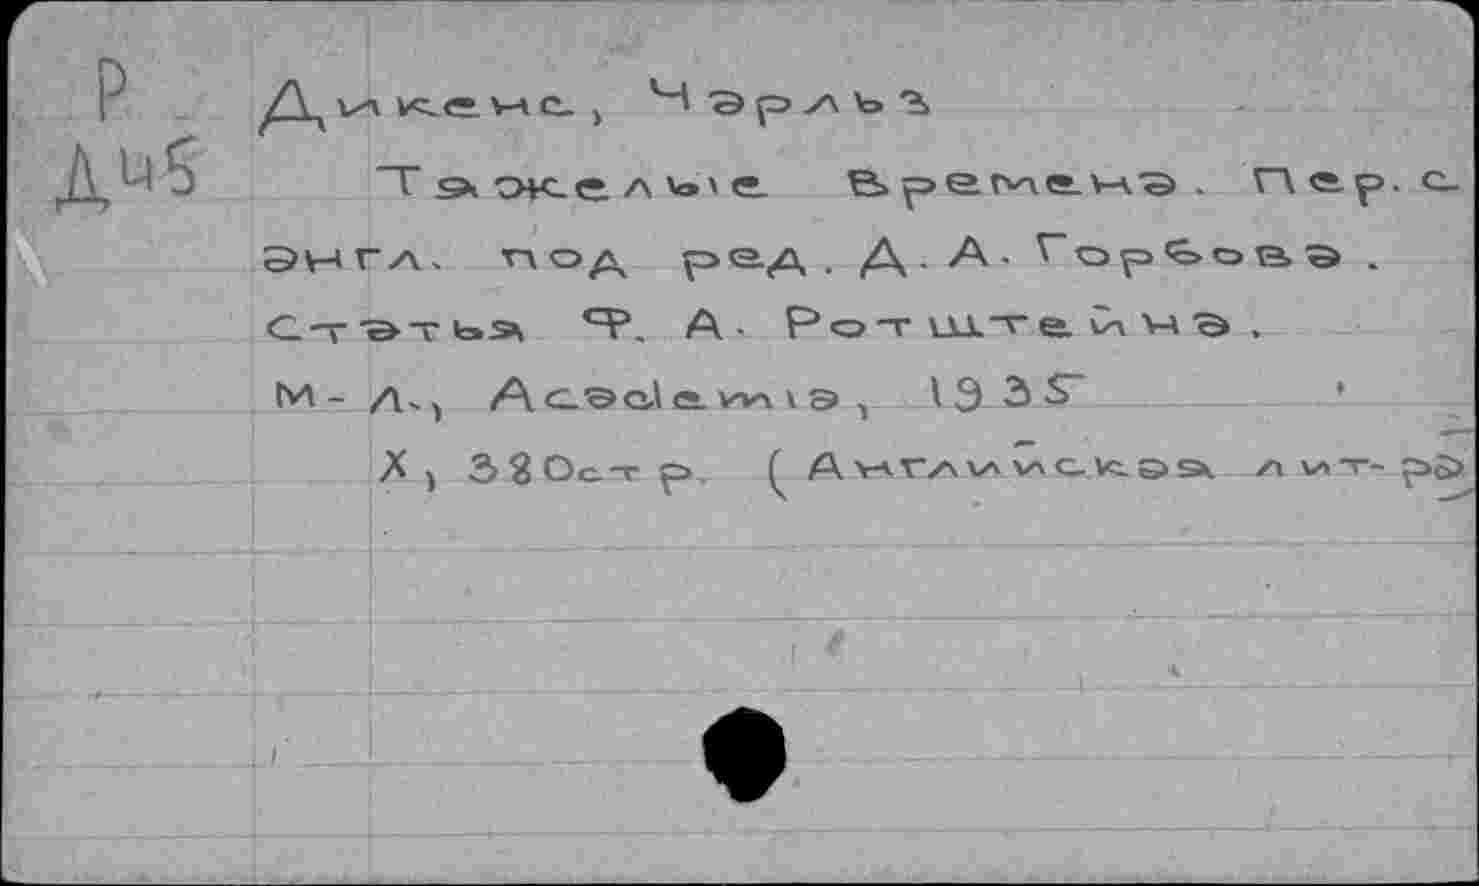 Р
Д45
Дикенс, Чарльз
Тяжелые времена. Пер. с
англ. под ред. Д. А. Горбова.
Статья Ф. А. Ротштейна.
М-Л., Academia, 1935
X, 380 стр. (Английская лит-ра)